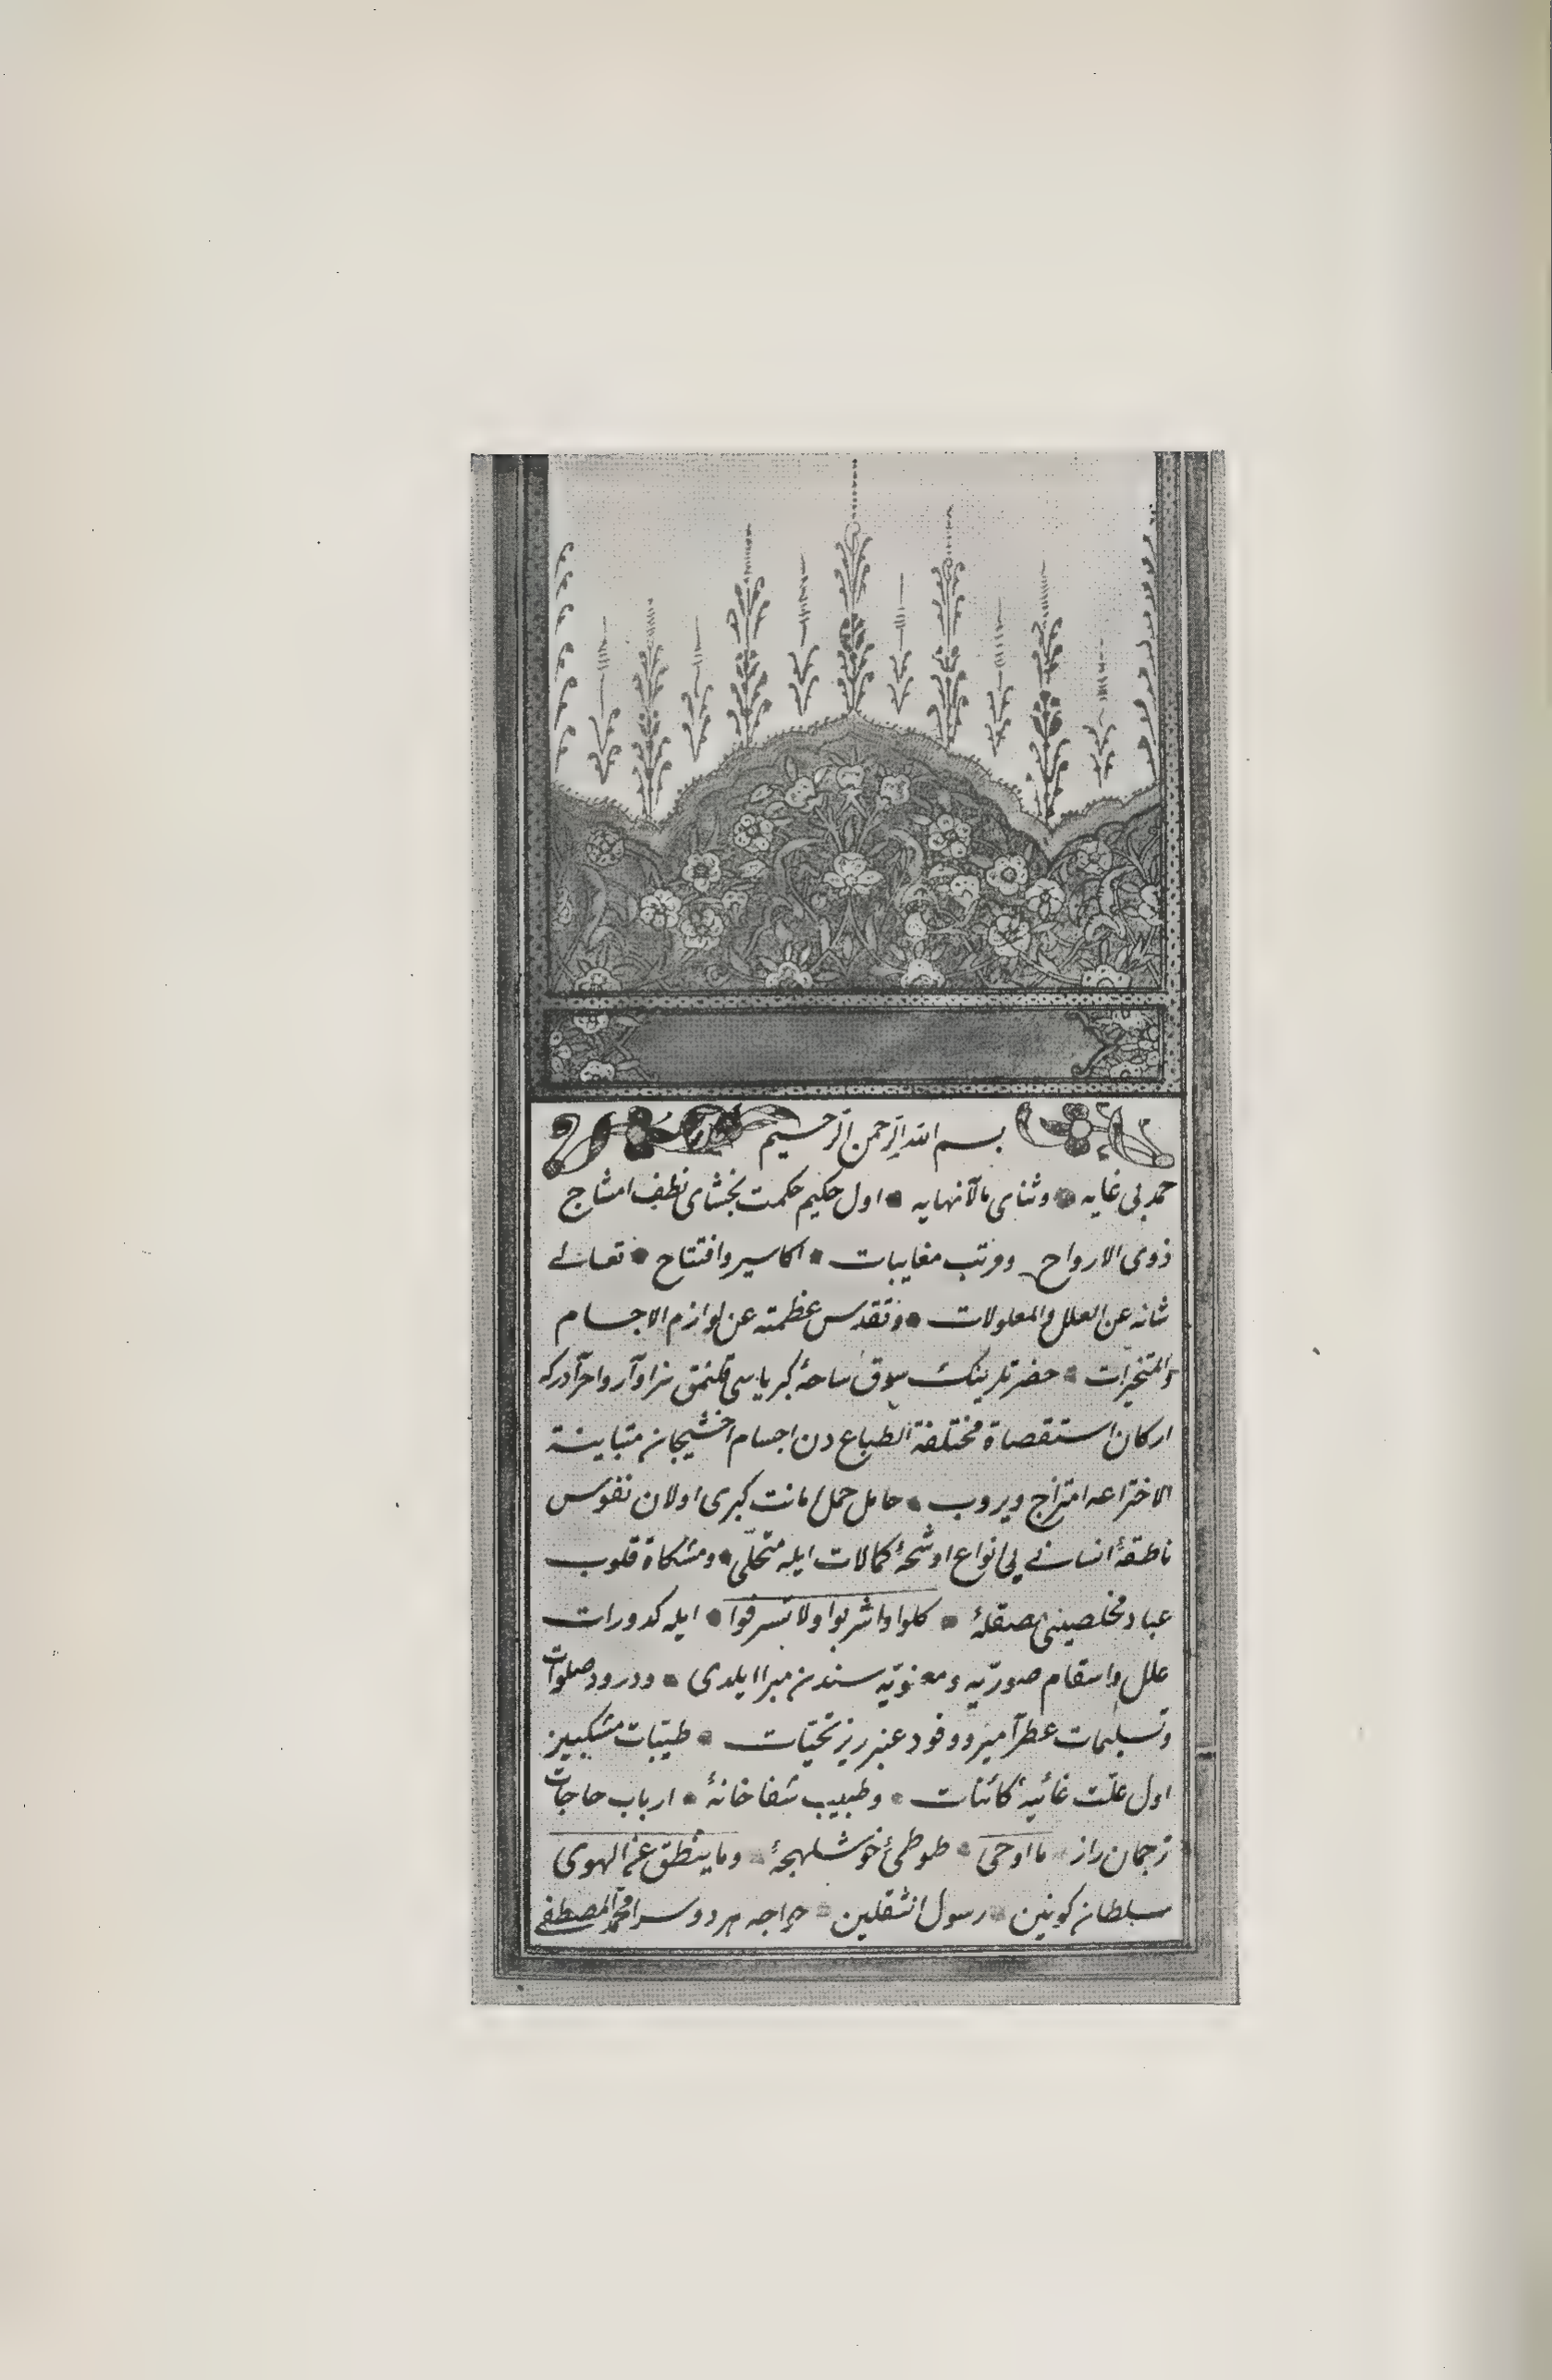 بسم الله الرحمن الرحيم
حمد بی غایه وثنای بالانهایه اول حکیم حکمت بخشای نطف امشاج
ذوی الارواح ومرتب مغایبات اکاسیر وافتتاح تعالی
شانه عن العلل والمعلولات وتقدس عظمته عن لوازم الاجسام
والمتحیزات حضرتلرینک سوق ساحهٔ کبریاسی قلنمق سزاوار واحرادرکه
ارکان استقصاة مختلفة الطباع دن اجسام اخشیجان متباینة
الاختراعه امتزاج ویروب حامل حمل امانت کبری اولان نفوس
ناطقهٔ انسانی یی انواع اوشحهٔ کمالات ایله متحلّی ومشکاة قلوب
عباد مخلصینی مصقلهٔ کلوا واشربوا ولا تسرفوا ایله کدورات
علل واسقام صوریّه ومعنویّه سندن مبرا ایلدی ودرود صلوات
وتسلیمات عطرآمیز ووفود عنبرریز تحیّات طیّبات مشکبیز
اول علّت غائیهٔ کائنات وطبیب شفاخانهٔ ارباب حاجات
ترجمان راز ما اوحی طوطئ خوشلهجهٔ وما ینطق عن الهوی
سلطان کونین رسول الثقلین خواجه هر دو سرا محمد المصطفی